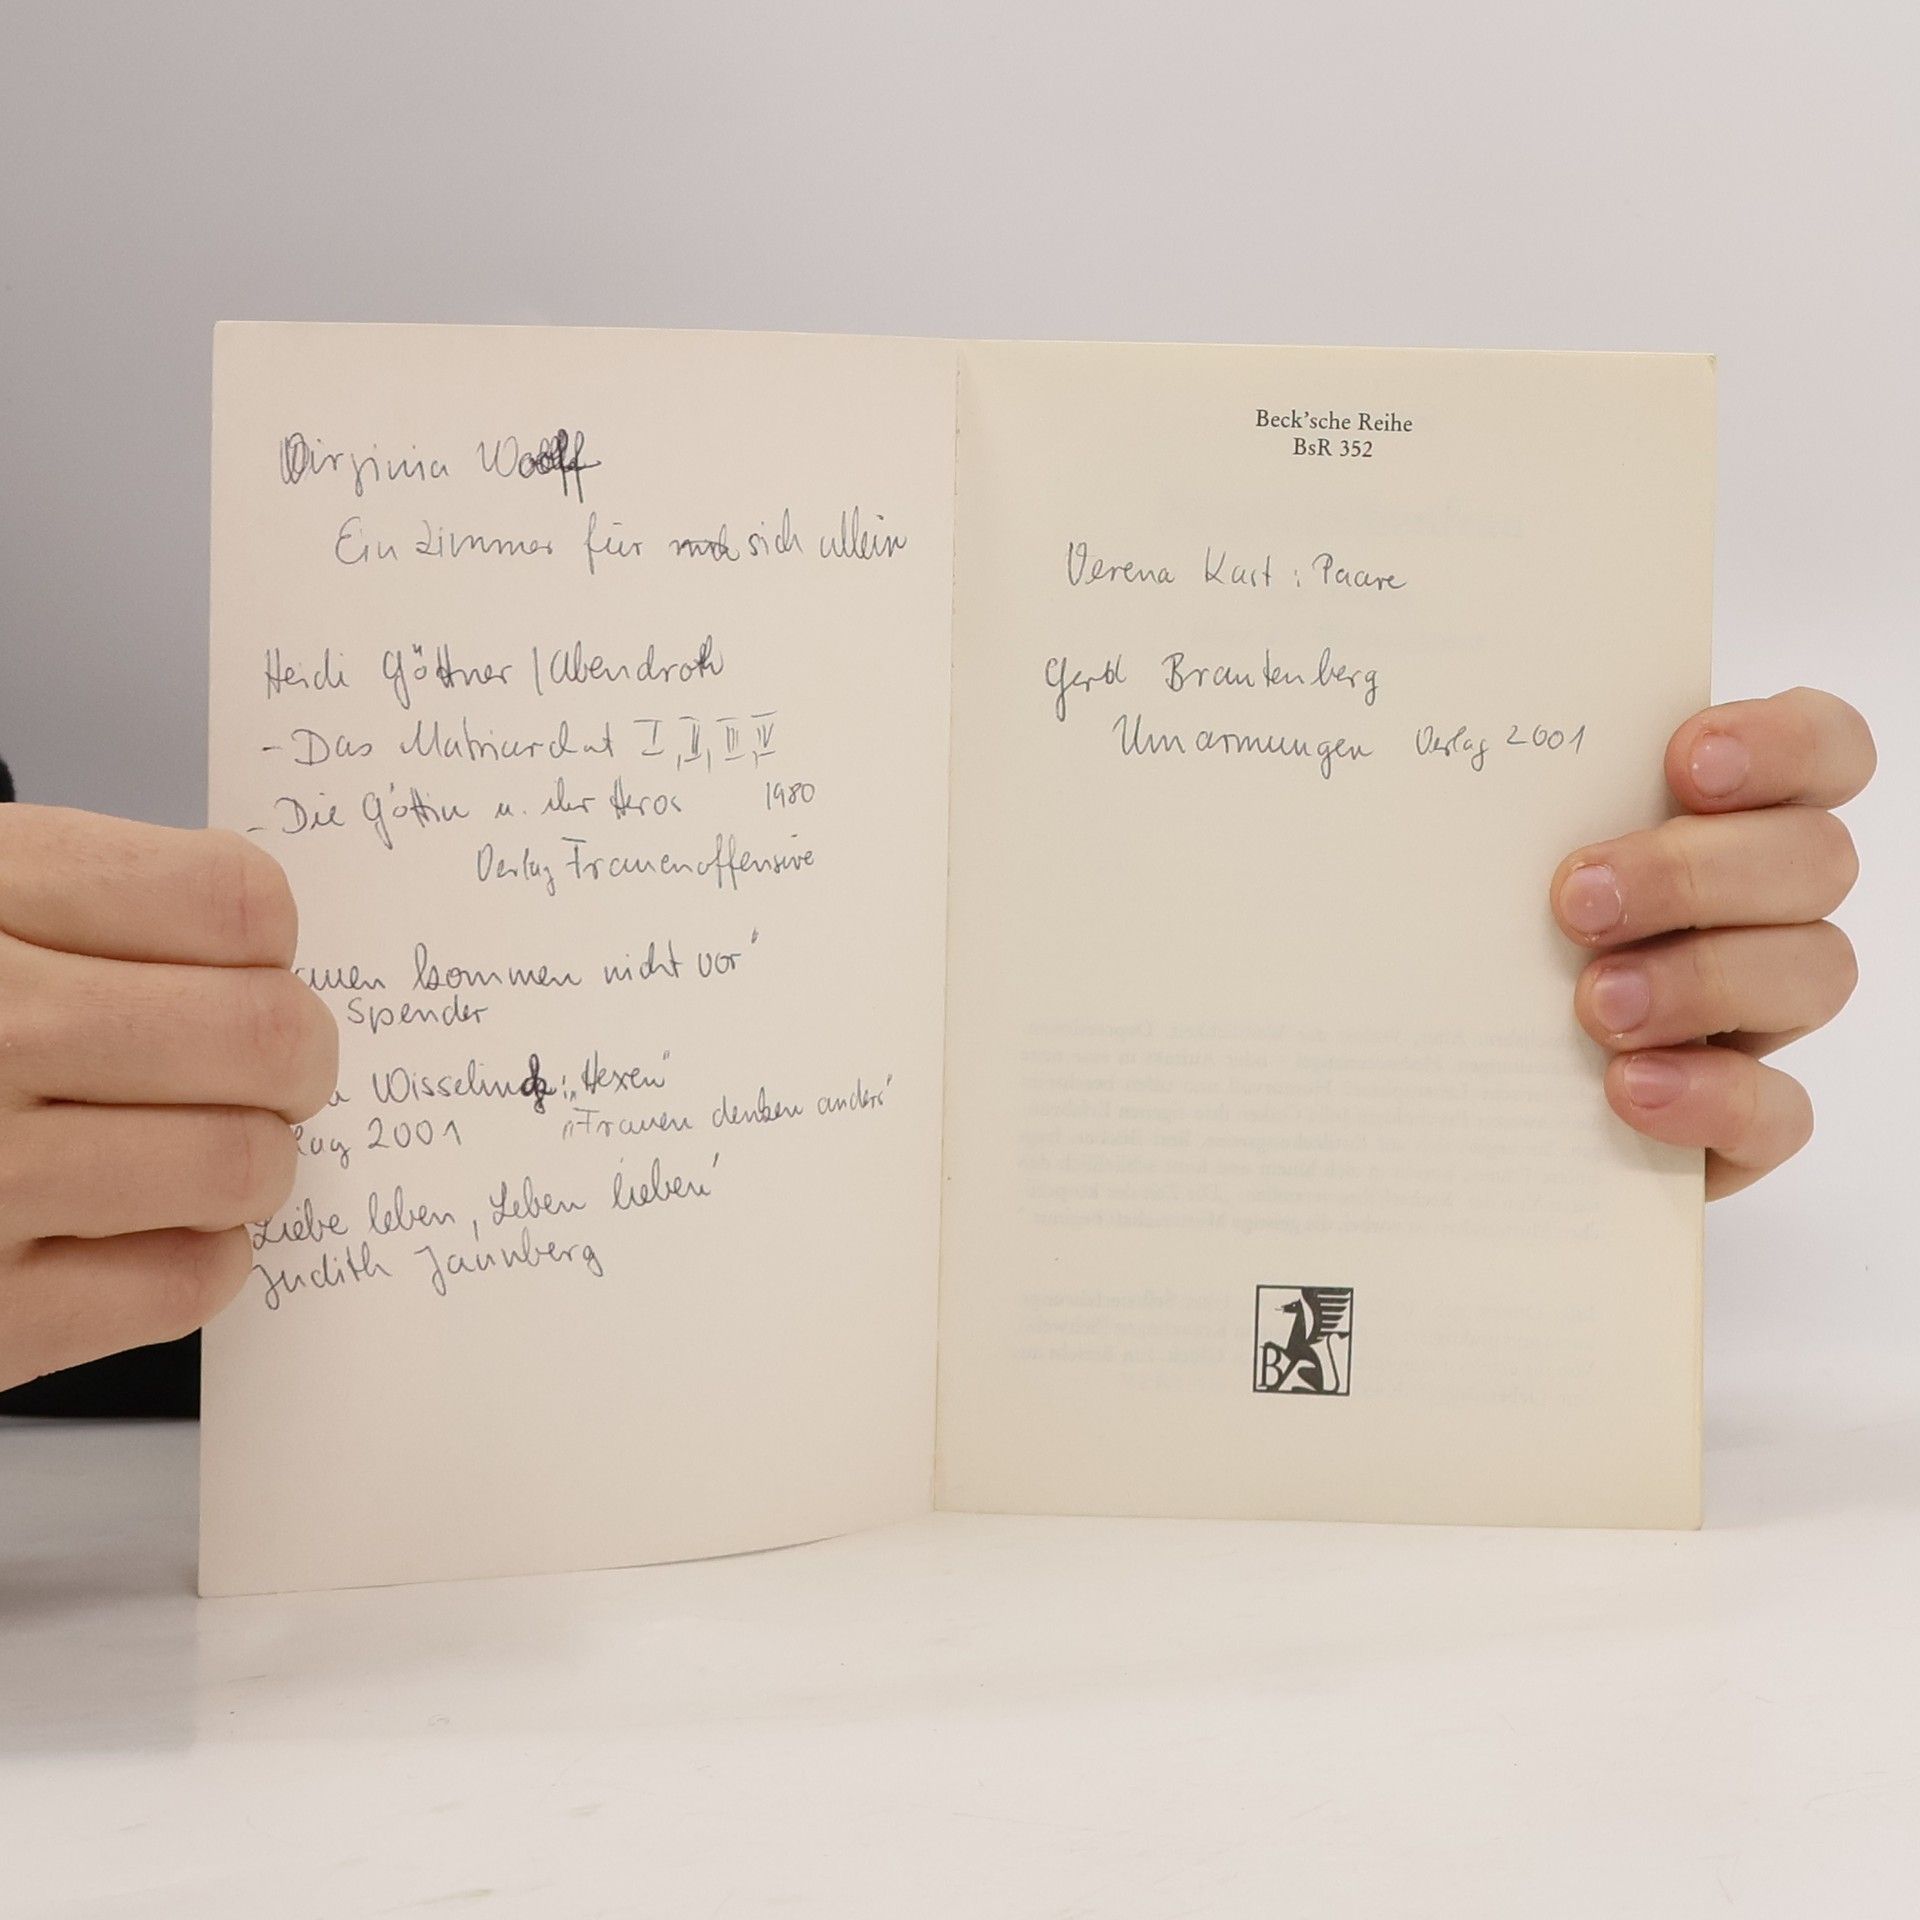 Virginia Woolf
Ein Zimmer für sich allein
Heidi Göttner / Abendroth
- Das Matriarchat I, II, III, IV
- Die Göttin u. ihr Heros 1980
Verlag Frauenoffensive
auen kommen nicht vor"
Spender
a Wisseling: "Hexen"
lag 2001 "Frauen denken anders"
Liebe leben, Leben lieben"
Judith Jannberg
Beck'sche Reihe
BsR 352
Verena Kast: Paare
Gerd Brantenberg
Umarmungen Verlag 2001
B